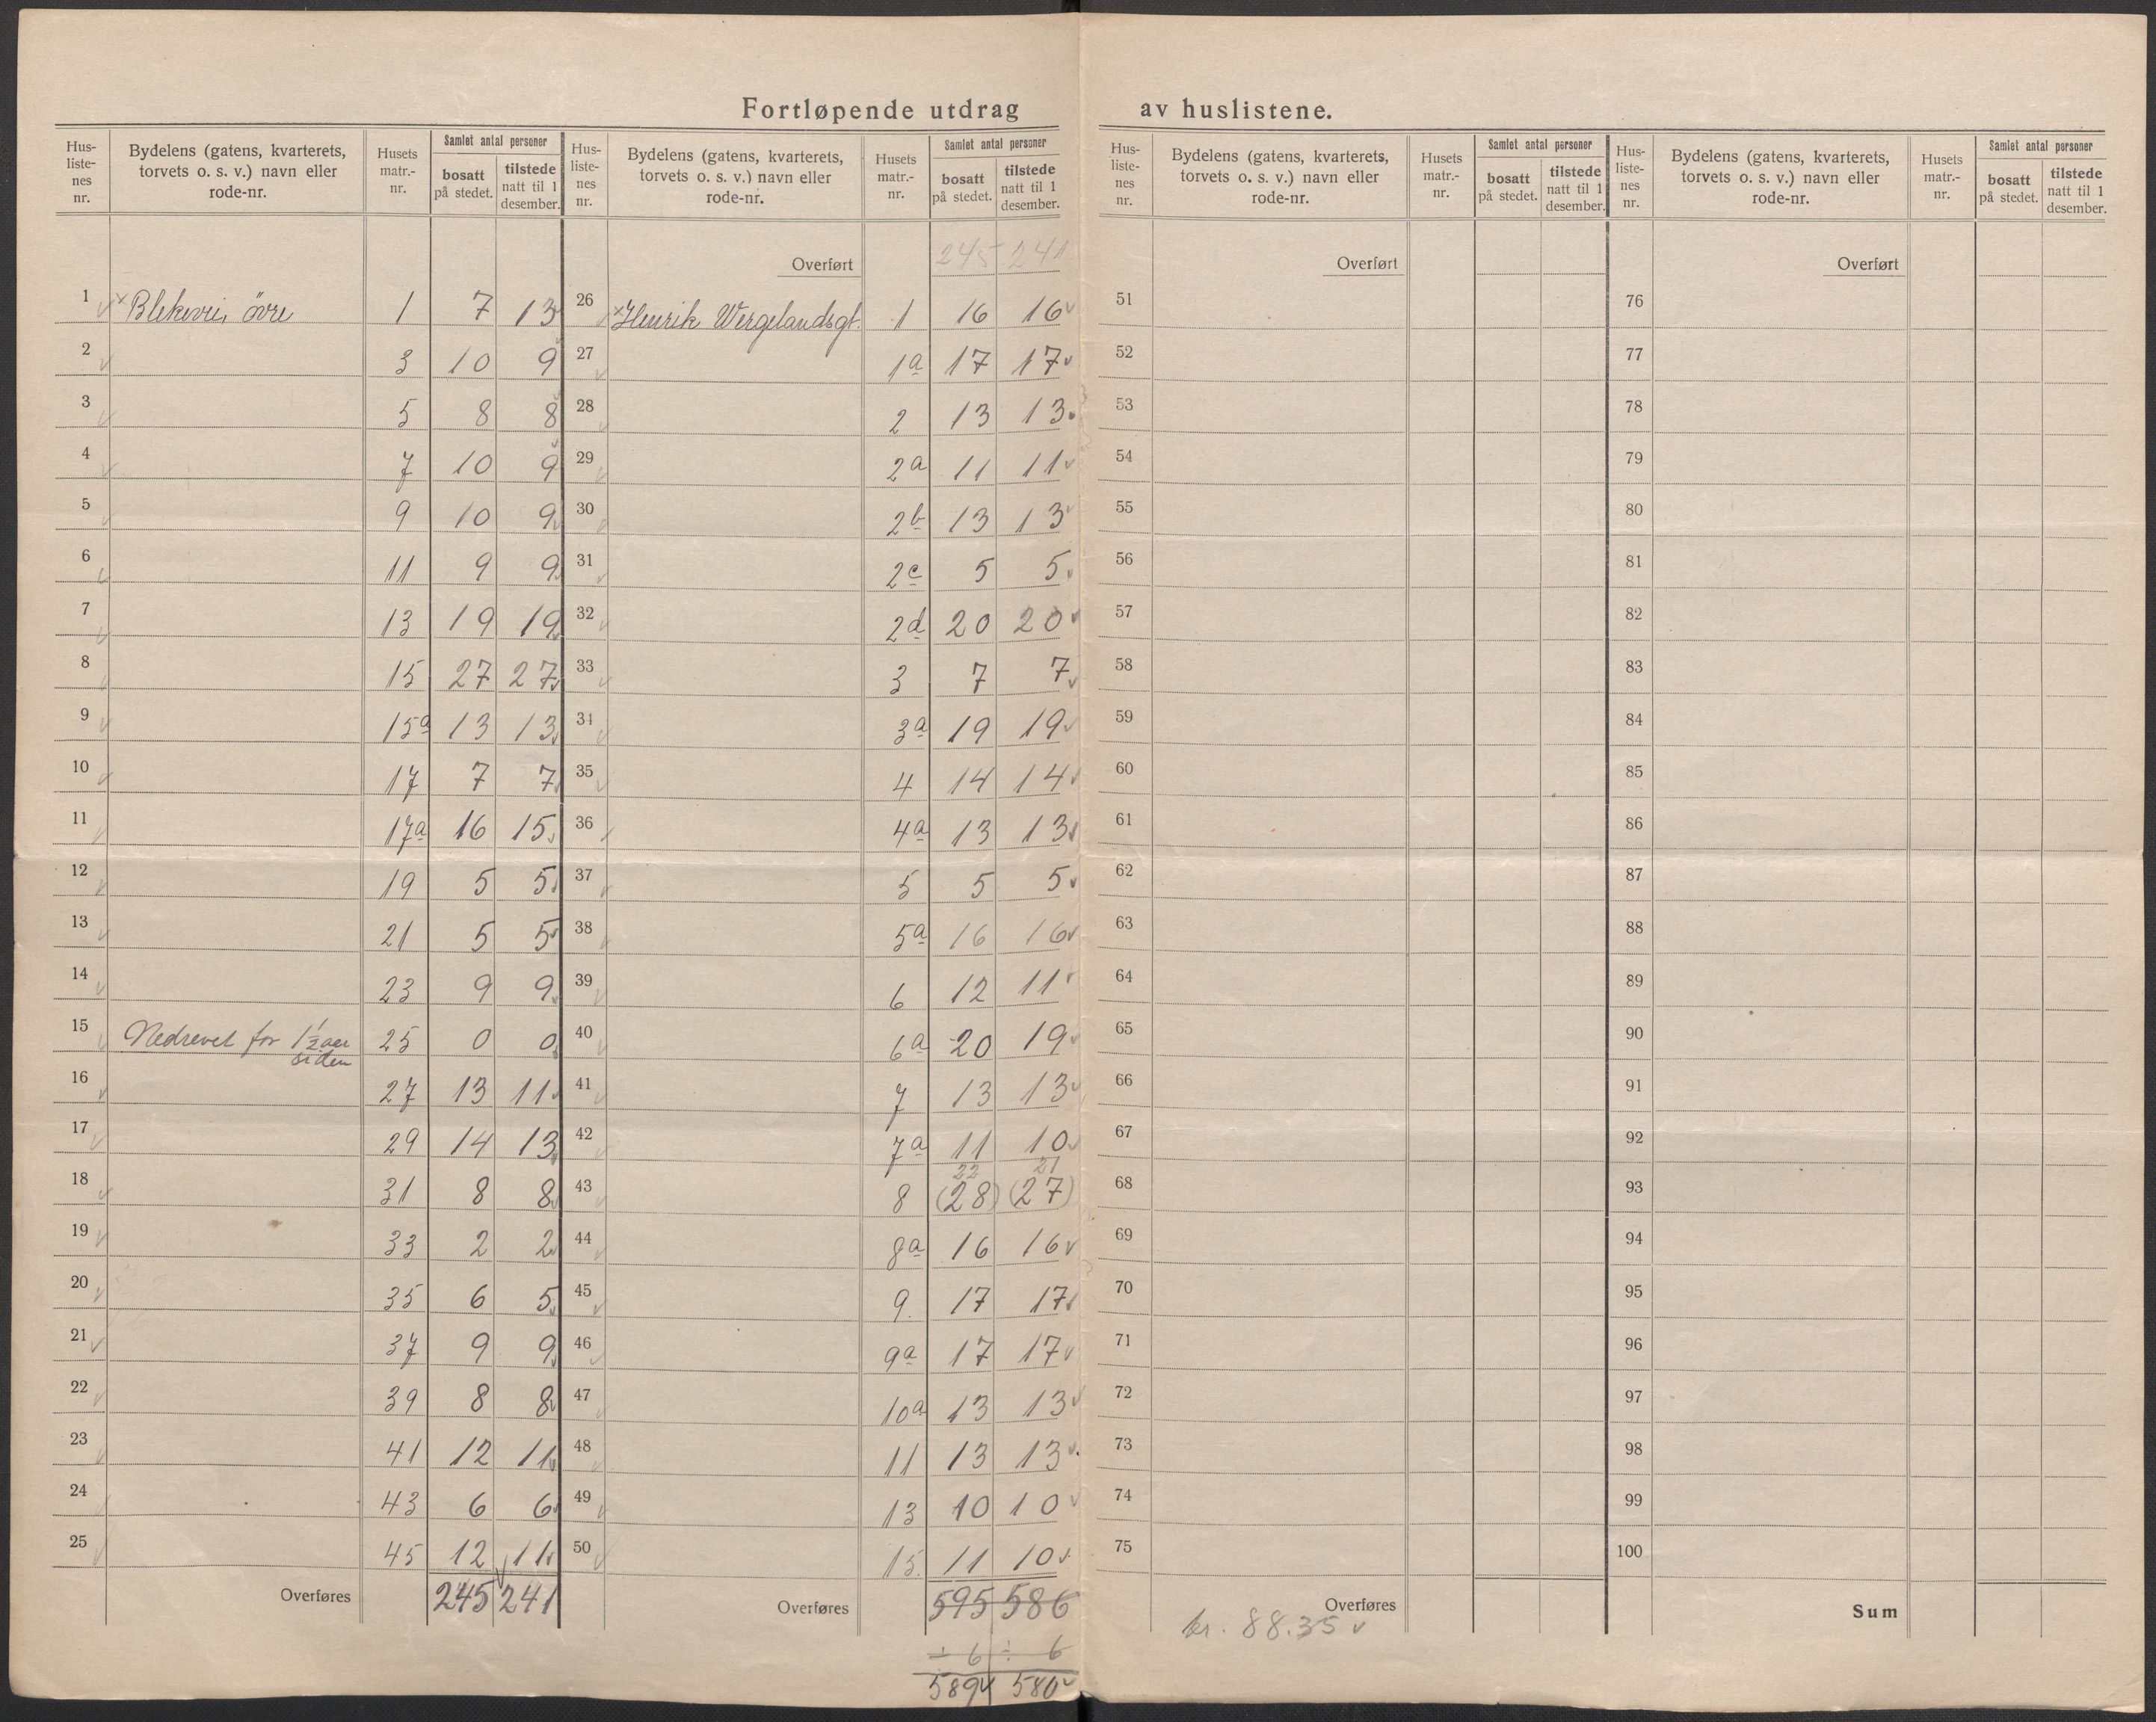 Fortløpende utdrag av huslistene.
Hus-listenes nr. | Bydelens (gatens, kvarterets, torvets o. s. v.) navn eller rode-nr. | Husets matr.-nr. | Samlet antal personer bosatt på stedet. | tilstede natt til 1 desember.
1 Blekevei, övre 1 7 13
2 3 10 9
3 5 8 8
4 7 10 9
5 9 10 9
6 11 9 9
7 13 19 19
8 15 27 27
9 15a 13 13
10 17 7 7
11 17a 16 15
12 19 5 5
13 21 5 5
14 23 9 9
15 Nedrevet for 1½ aar siden 25 0 0
16 27 13 11
17 29 14 13
18 31 8 8
19 33 2 2
20 35 6 5
21 37 9 9
22 39 8 8
23 41 12 11
24 43 6 6
25 45 12 11
Overføres 245 241
Hus-listenes nr. | Bydelens (gatens, kvarterets, torvets o. s. v.) navn eller rode-nr. | Husets matr.-nr. | Samlet antal personer bosatt på stedet. | tilstede natt til 1 desember.
Overført 245 241
26 Henrik Wergelandsgt. 1 16 16
27 1a 17 17
28 2 13 13
29 2a 11 11
30 2b 13 13
31 2c 5 5
32 2d 20 20
33 3 7 7
34 3a 19 19
35 4 14 14
36 4a 13 13
37 5 5 5
38 5a 16 16
39 6 12 11
40 6a 20 19
41 7 13 13
42 7a 11 10
22 21
43 8 (28) (27)
44 8a 16 16
45 9 17 17
46 9a 17 17
47 10a 13 13
48 11 13 13
49 13 10 10
50 15 11 10
Overføres 595 586
÷ 6 ÷ 6
589 580
Hus-listenes nr. | Bydelens (gatens, kvarterets, torvets o. s. v.) navn eller rode-nr. | Husets matr.-nr. | Samlet antal personer bosatt på stedet. | tilstede natt til 1 desember.
Overført
51
52
53
54
55
56
57
58
59
60
61
62
63
64
65
66
67
68
69
70
71
72
73
74
75
Overføres
kr. 88.35
Hus-listenes nr. | Bydelens (gatens, kvarterets, torvets o. s. v.) navn eller rode-nr. | Husets matr.-nr. | Samlet antal personer bosatt på stedet. | tilstede natt til 1 desember.
Overført
76
77
78
79
80
81
82
83
84
85
86
87
88
89
90
91
92
93
94
95
96
97
98
99
100
Sum